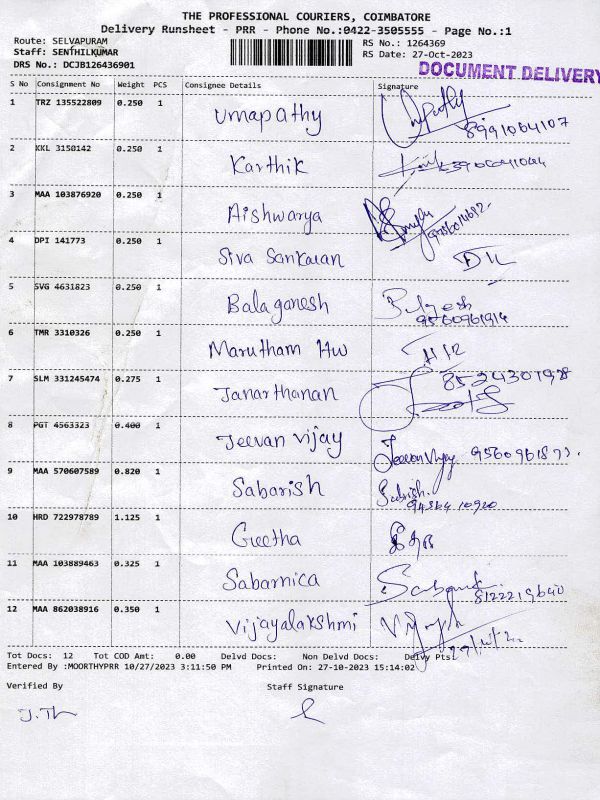 THE PROFESSIONAL COURIERS, COIMBATORE
Delivery Runsheet - PRR - Phone No.:0422-3505555 - Page No.:1
Route: SELVAPURAM RS No.: 1264369
Staff: SENTHILKUMAR RS Date: 27-Oct-2023
DRS No.: DCJB126436901 DOCUMENT DELIVERY
S No Consignment No Weight PCS Consignee Details Signature
1 TRZ 135522809 0.250 1 Umapathy
2 KKL 3150142 0.250 1 Karthik
3 MAA 103876920 0.250 1 Aishwarya
4 DPI 141773 0.250 1 Siva Sankaran
5 SVG 4631823 0.250 1 Balaganesh
6 TMR 3310326 0.250 1 Marutham Hw
7 SLM 331245474 0.275 1 Janarthanan 852430198
8 PGT 4563323 0.400 1 Jeevan vijay Jeevan Vijay
9 MAA 570607589 0.820 1 Sabarish
10 HRD 722978789 1.125 1 Geetha
11 MAA 103889463 0.325 1 Sabarnica
12 MAA 862038916 0.350 1 Vijayalakshmi
Tot Docs: 12 Tot COD Amt: 0.00 Delvd Docs: Non Delvd Docs: Delvy Pts:
Entered By :MOORTHYPRR 10/27/2023 3:11:50 PM Printed On: 27-10-2023 15:14:02
Verified By Staff Signature